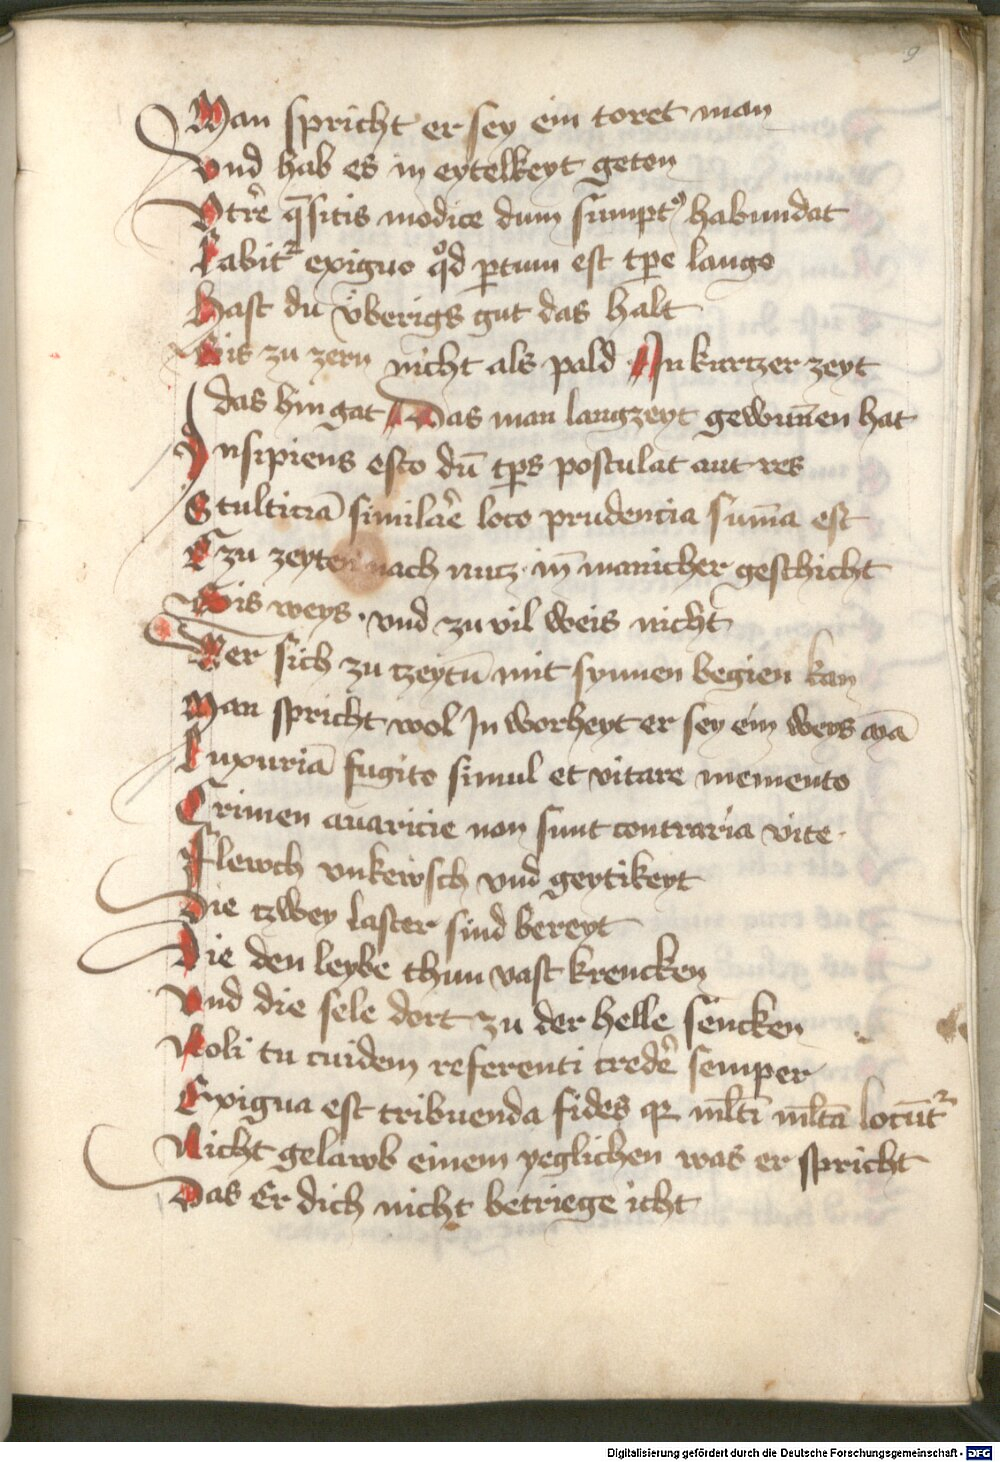 9
Man spricht er sey ein toret man
Vnd hab es in eytelkeyt geton
Vtr̃e q̃sitis modice dum sumptꝰ habundat
Labitᷣ exiguo qͦd ꝑtum est tp̃e longo
Hast du v̈berigs gut das halt
Bis zu zern nicht als pald In kurtzer zeyt
das hin gat Das man langzeyt gewun̄en hat
Insipiens esto dū tp̃s postulat aut res
Stulticiā similar̃e loco prudencia sum̄a est
Czu zeyten nach nutz in̄ manicher geschicht
Bis weys . vnd zu vil weis nicht
Wer sich zu tzeytn̄ mit synnen begien kan
Man spricht wol In worheyt er sey ein weys mā
Luxuriā fugito simul et vitare memento
Crimen auaricie non sunt contraria vite .
Flewch vnkewsch vnd geytikeyt
Die tzwey laster sind bereyt
Die den leybe thun vast krencken
Vnd die sele dort zu der helle sencken
Noli tu cuidem referenti creder̃ semper
Exigua est tribuenda fides qꝛ ml̄ti ml̄ta locūtᷣ
Nicht gelawb einem yeglichen was er spricht
Das Er dich nicht betriege icht
Digitalisierung gefördert durch die Deutsche Forschungsgemeinschaft - DFG